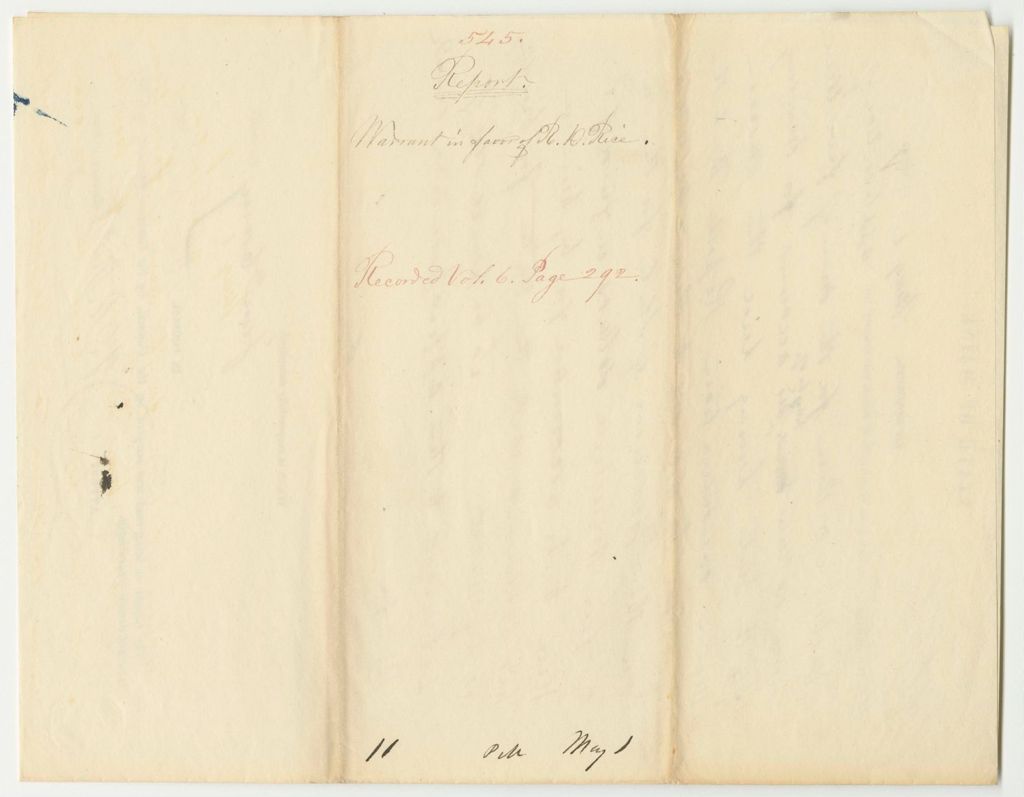 545.
Report.
Warrant in favor of R. D. Rice.
Recorded Vol. 6. Page 292.
11 May 1